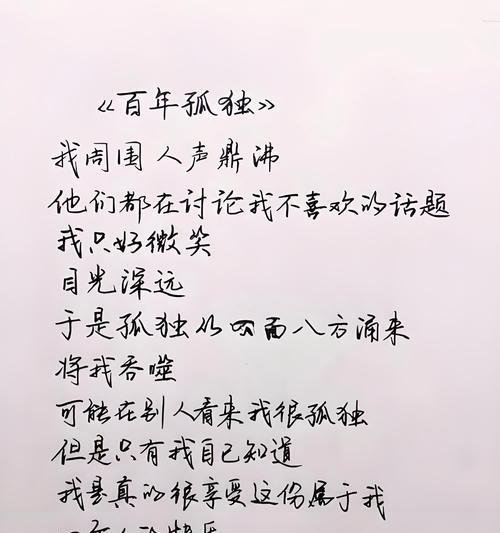 《百年孤独》
我周围人声鼎沸
他们都在讨论我不喜欢的话题
我只好微笑
目光深远
于是孤独从四面八方涌来
将我吞噬
可能在别人看来我很孤独
但是只有我自己知道
我是真的很享受这份属于我